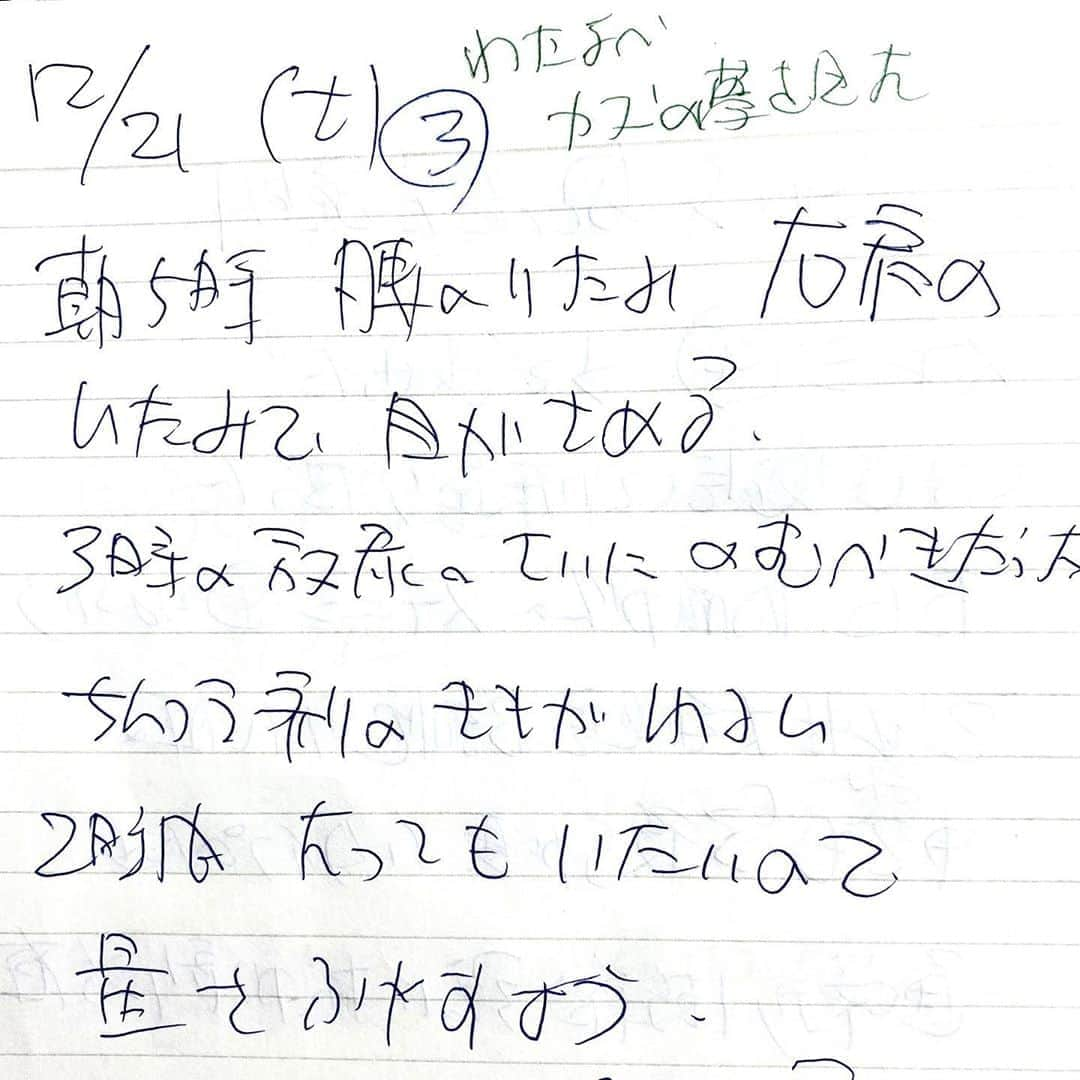 わたなべ
カズの夢を見た
12/21 (土) ③
朝5時 腰のいたみ 右肩の
いたみで 目がさめる.
3時の ていに のむべきだった
ちんつう剤の ききが わるい
2時間 たっても いたいので
量を ふやすよう.